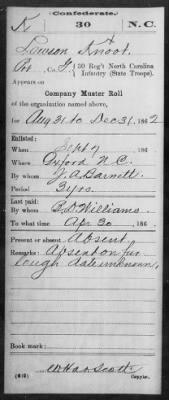 Confederate.
K 30 N.C.
Lawson Knoot.
Pvt, Co. G, 30 Reg't North Carolina
Infantry (State Troops).
Appears on
Company Muster Roll
of the organization named above,
for Aug 31 to Dec 31, 1862
Enlisted:
When Sept 7, 186 .
Where Oxford N.C.
By whom J. A. Barnett
Period 3 yrs.
Last paid:
By whom B. D. Williams.
To what time Apr 30, 186 .
Present or absent Absent.
Remarks: Absent on fur
lough date unknown,
Book mark:
(642)
Copyist.